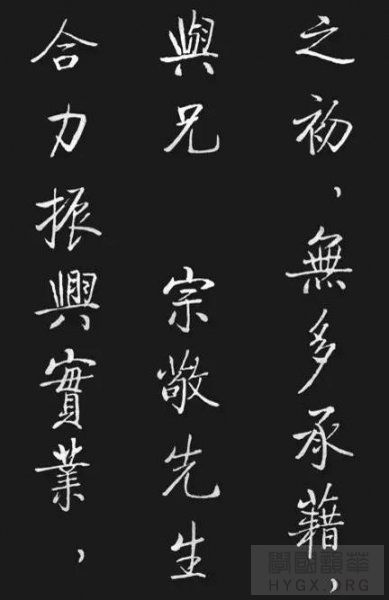 之初，無多承藉，
與兄　宗敬先生
合力振興實業，
華韻國學
HYGX.ORG